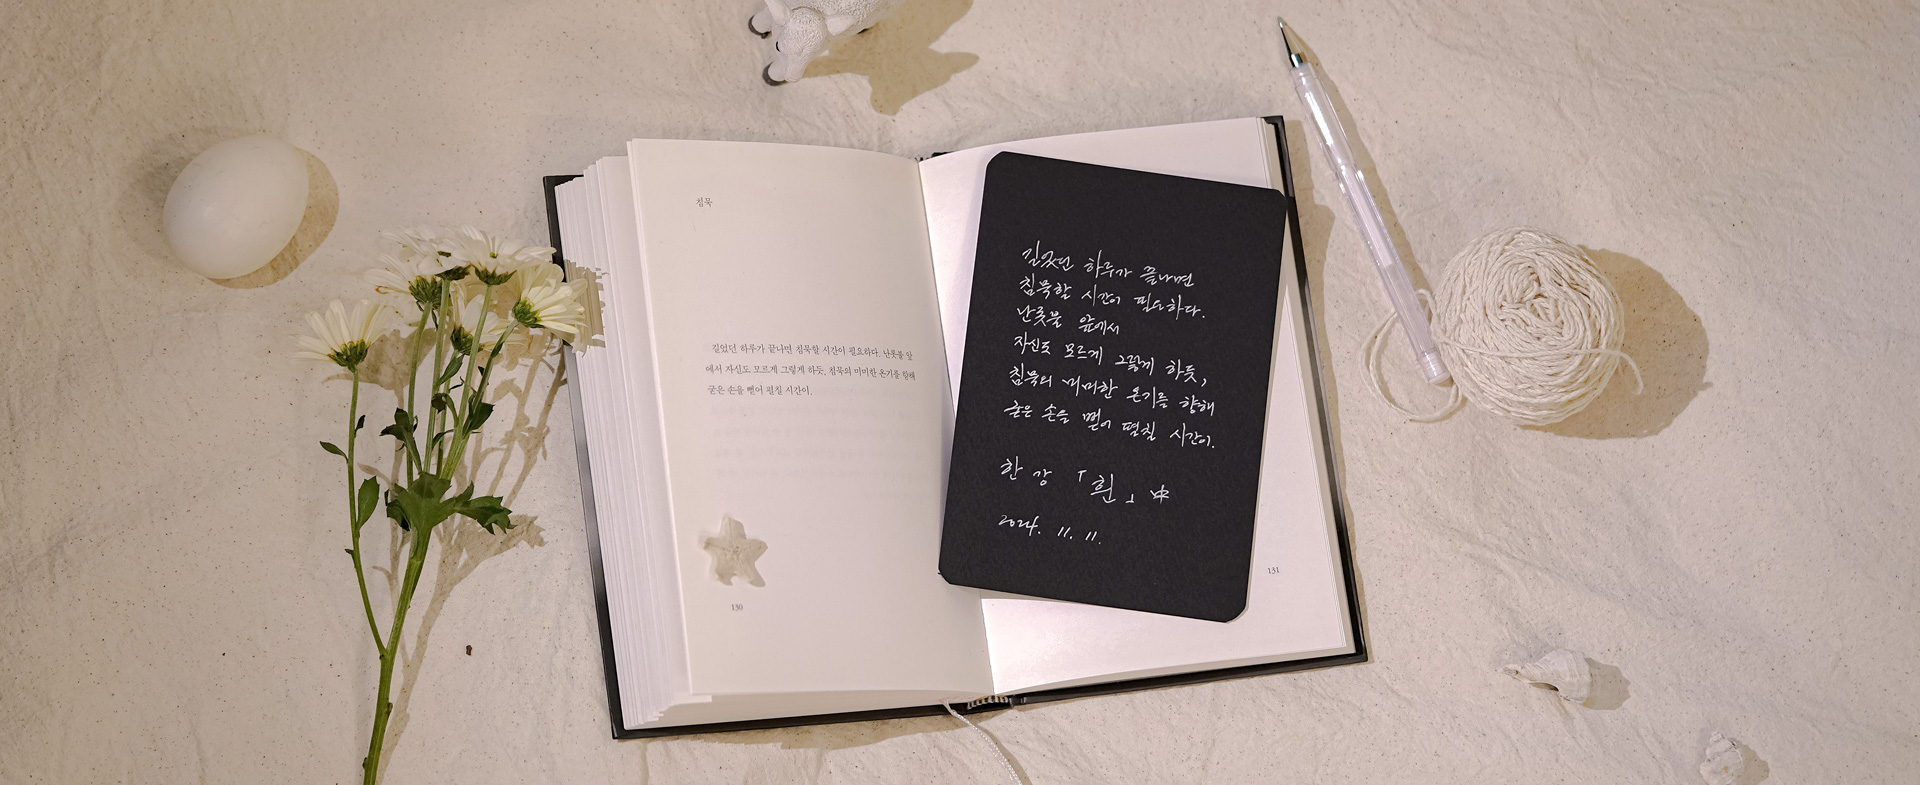 침묵
길었던 하루가 끝나면 침묵할 시간이 필요하다. 난롯불 앞
에서 자신도 모르게 그렇게 하듯, 침묵의 미미한 온기를 향해
굳은 손을 뻗어 펼칠 시간이.
130
길었던 하루가 끝나면
침묵할 시간이 필요하다.
난롯불 앞에서
자신도 모르게 그렇게 하듯,
침묵의 미미한 온기를 향해
굳은 손을 뻗어 펼칠 시간이.
한강 「흰」 中
2024. 11. 11.
131